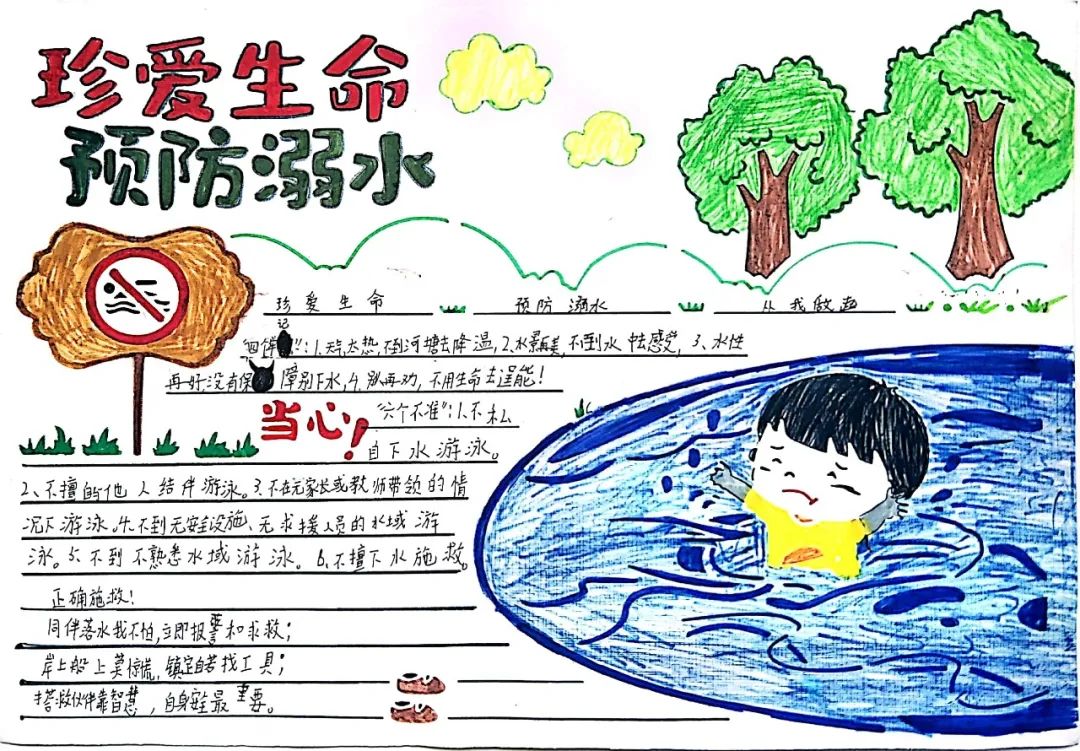 珍爱生命
预防溺水
珍爱生命 预防溺水 从我做起
"四件记":1.天气太热,不到河塘去降温,2.水景虽美,不到水中去感受,3、水性
再好没有保障别下水,4.别再劝,不用生命去逞能!
当心! "六个不准":1.不私
自下水游泳。
2、不擅自与他人结伴游泳。3.不在无家长或教师带领的情
况下游泳。4.不到无安全设施、无求援人员的水域游
泳。5.不到不熟悉水域游泳。6.不擅下水施救。
正确施救!
同伴落水我不怕,立即报警和求救;
岸上船上莫惊慌,镇定自若找工具;
搭救伙伴靠智慧,自身安全最重要。